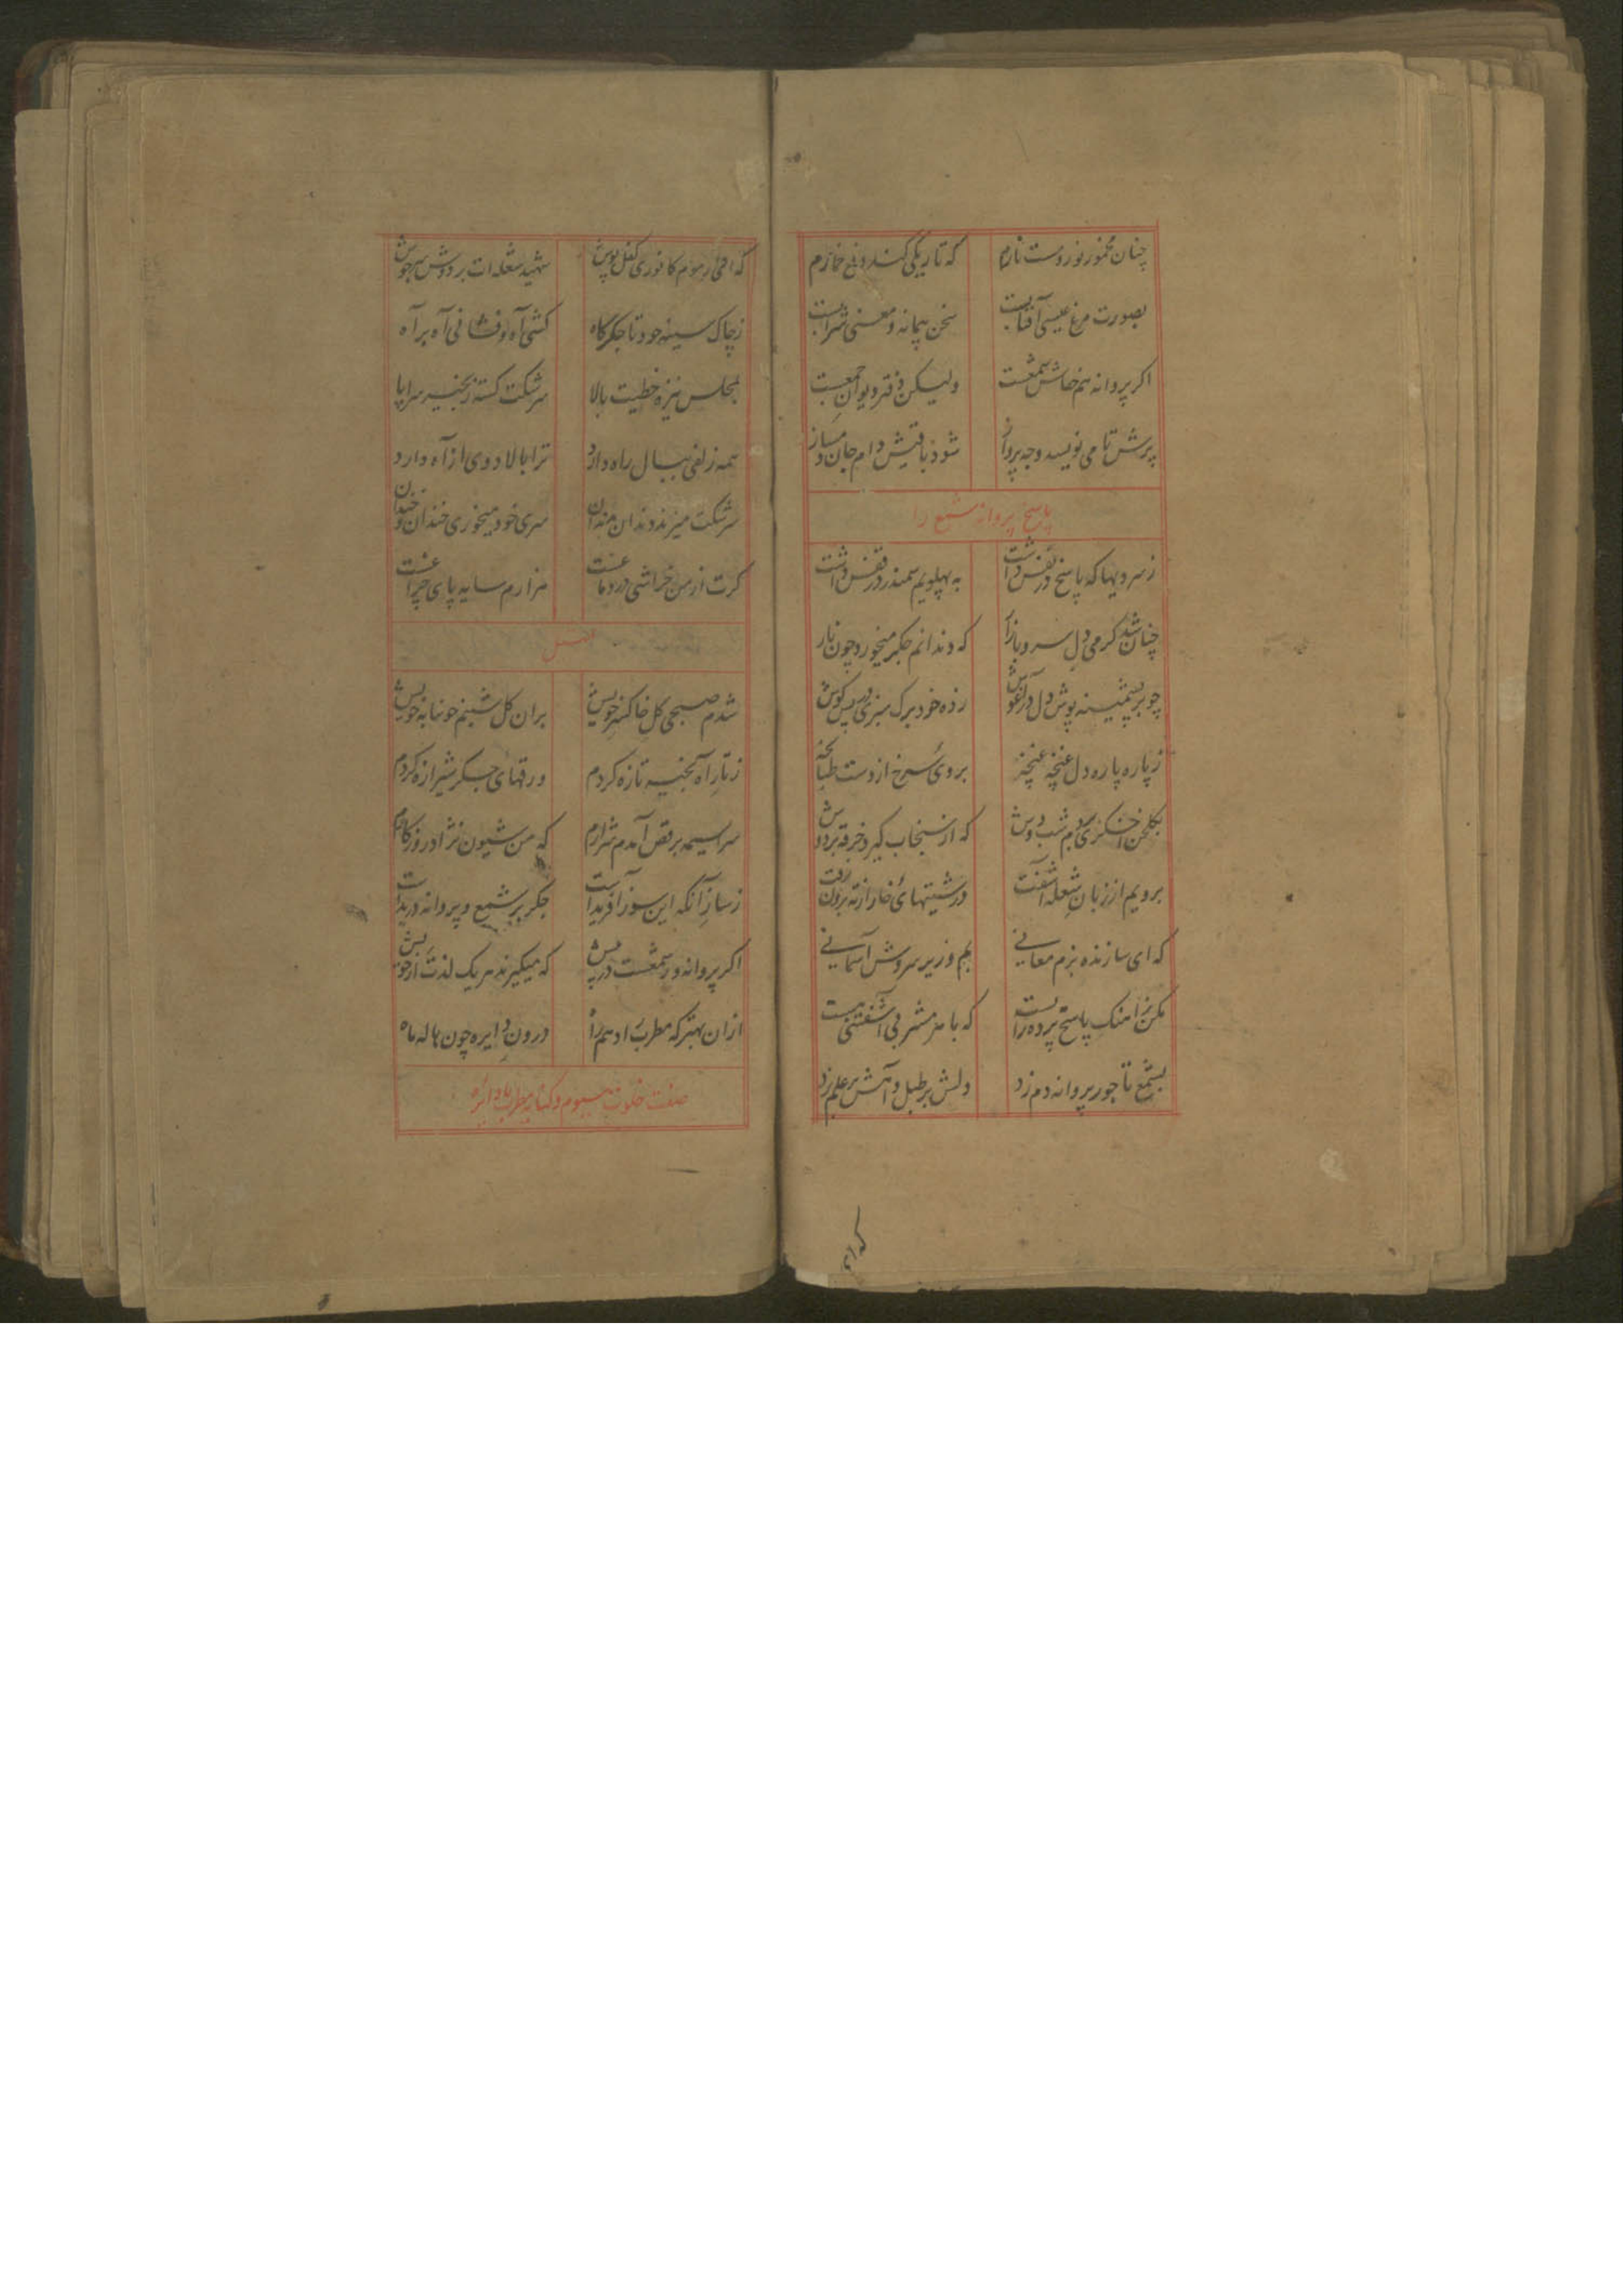 چنان مخمور نور و مست نازم که تاریکی کند دفع خمارم
بصورت مرغ عیسی آفتابست سخن پیمانه و معنی شرابست
اکر پروانه هم خاش شمعست ولیکن دفتر دیوان جمعست
پرش تا می نویسد وجد پرواز شود بافتیش دام جان
پاسخ پروانه شمع را
ز سرویها که پاسخ در نفس داشت به پهلویم سمندر در قفس داشت
چنان شد کرمی دل سرو بازار که دندانم جکر میخورد چون نار
چو بر پشمینه پوش دل در آغوش زده خود برک سبزی در پس کوش
ز پاره پاره دل غنچه غنچه بروی سرخ از دست طبانچه
بکلخن اخکری دیدم شب دوش که از سنجاب کیرد خرقه بر دوش
برویم از زبان شعله آشفت درشتیهای خار از ته برون رفت
که ای سازنده بزم معانی بم و زیر سروش آسمانی
مکن ز آهنک پاسخ پرده راست که با هر مشربی آشفتنی هست
بشمع تا جور پروانه دم زد دلش بر طبل و آتش بر علم زد
که ای
که ای مرحوم کافوری کفن پوش شهید شعله ات بر دوش سر جوش
ز چاک سینه خود تا جکرکاه کشی آه و فشانی آه بر آه
بمجلس نیزه خطیت بالا سرشکت کسته زنجیر سراپا
همه زلفی ببال راه دارد ترا بالا دوی از آه دارد
سرشکت میزند دندان بدندان سری خود میخوری خندان و خندان
کرت از من خراشی در دماغست هزارم سایه پای چراغست
شدم صبحی کل خاکستر خویش بران کل شبنم خونابه خویش
ز تار آه بخیه تازه کردم ورقهای جکر شیرازه کردم
سراسیمه برقص آمد شرارم که من شیون نژاد روزکارم
ز ساز آنکه این سوز آفریدست جکر بر شمع و پروانه دریدست
اکر پروانه ور شمعست در پیش که میکیرند هر یک لذت از خویش
ازان بهتر که مطرب را دهم راه درون دایره چون هاله ماه
صفت خلوت سیوم و کنایه مطرب با دایره